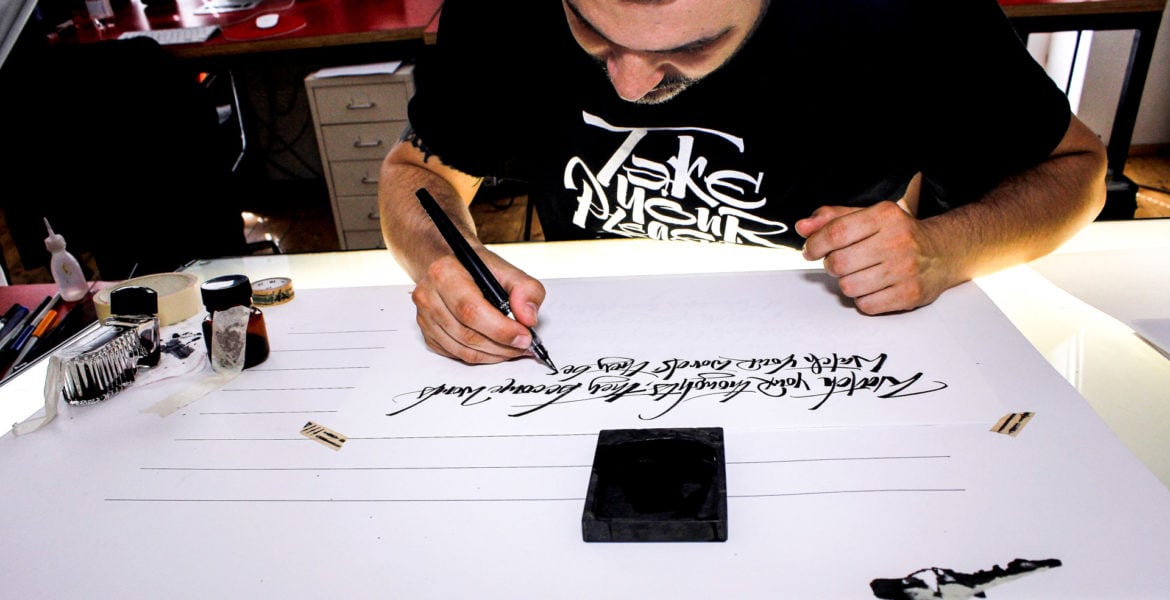 Take
Your
Watch your thoughts, they become words
Watch your words they be